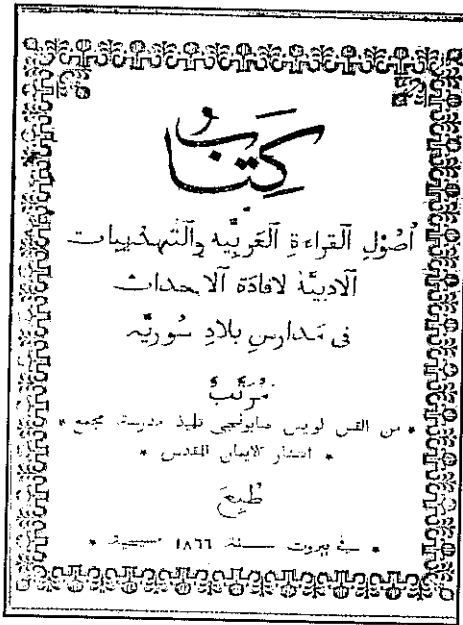 كِتَابُ
أُصُوْلِ ٱلقراءةِ ٱلعَربيَّه وٱلتَّهذيبات
ٱلادبيَّة لافادَة ٱلاحداث
فى مَدارسِ بلادِ سُوريَّه
مُرَتَّبٌ
* من القس لويس صابونجى تلميذ مدرسة مجمع *
* انتشار الايمان المقدس *
طُبِعَ
* فى بيروت سنة ١٨٦٦ مسيحية *